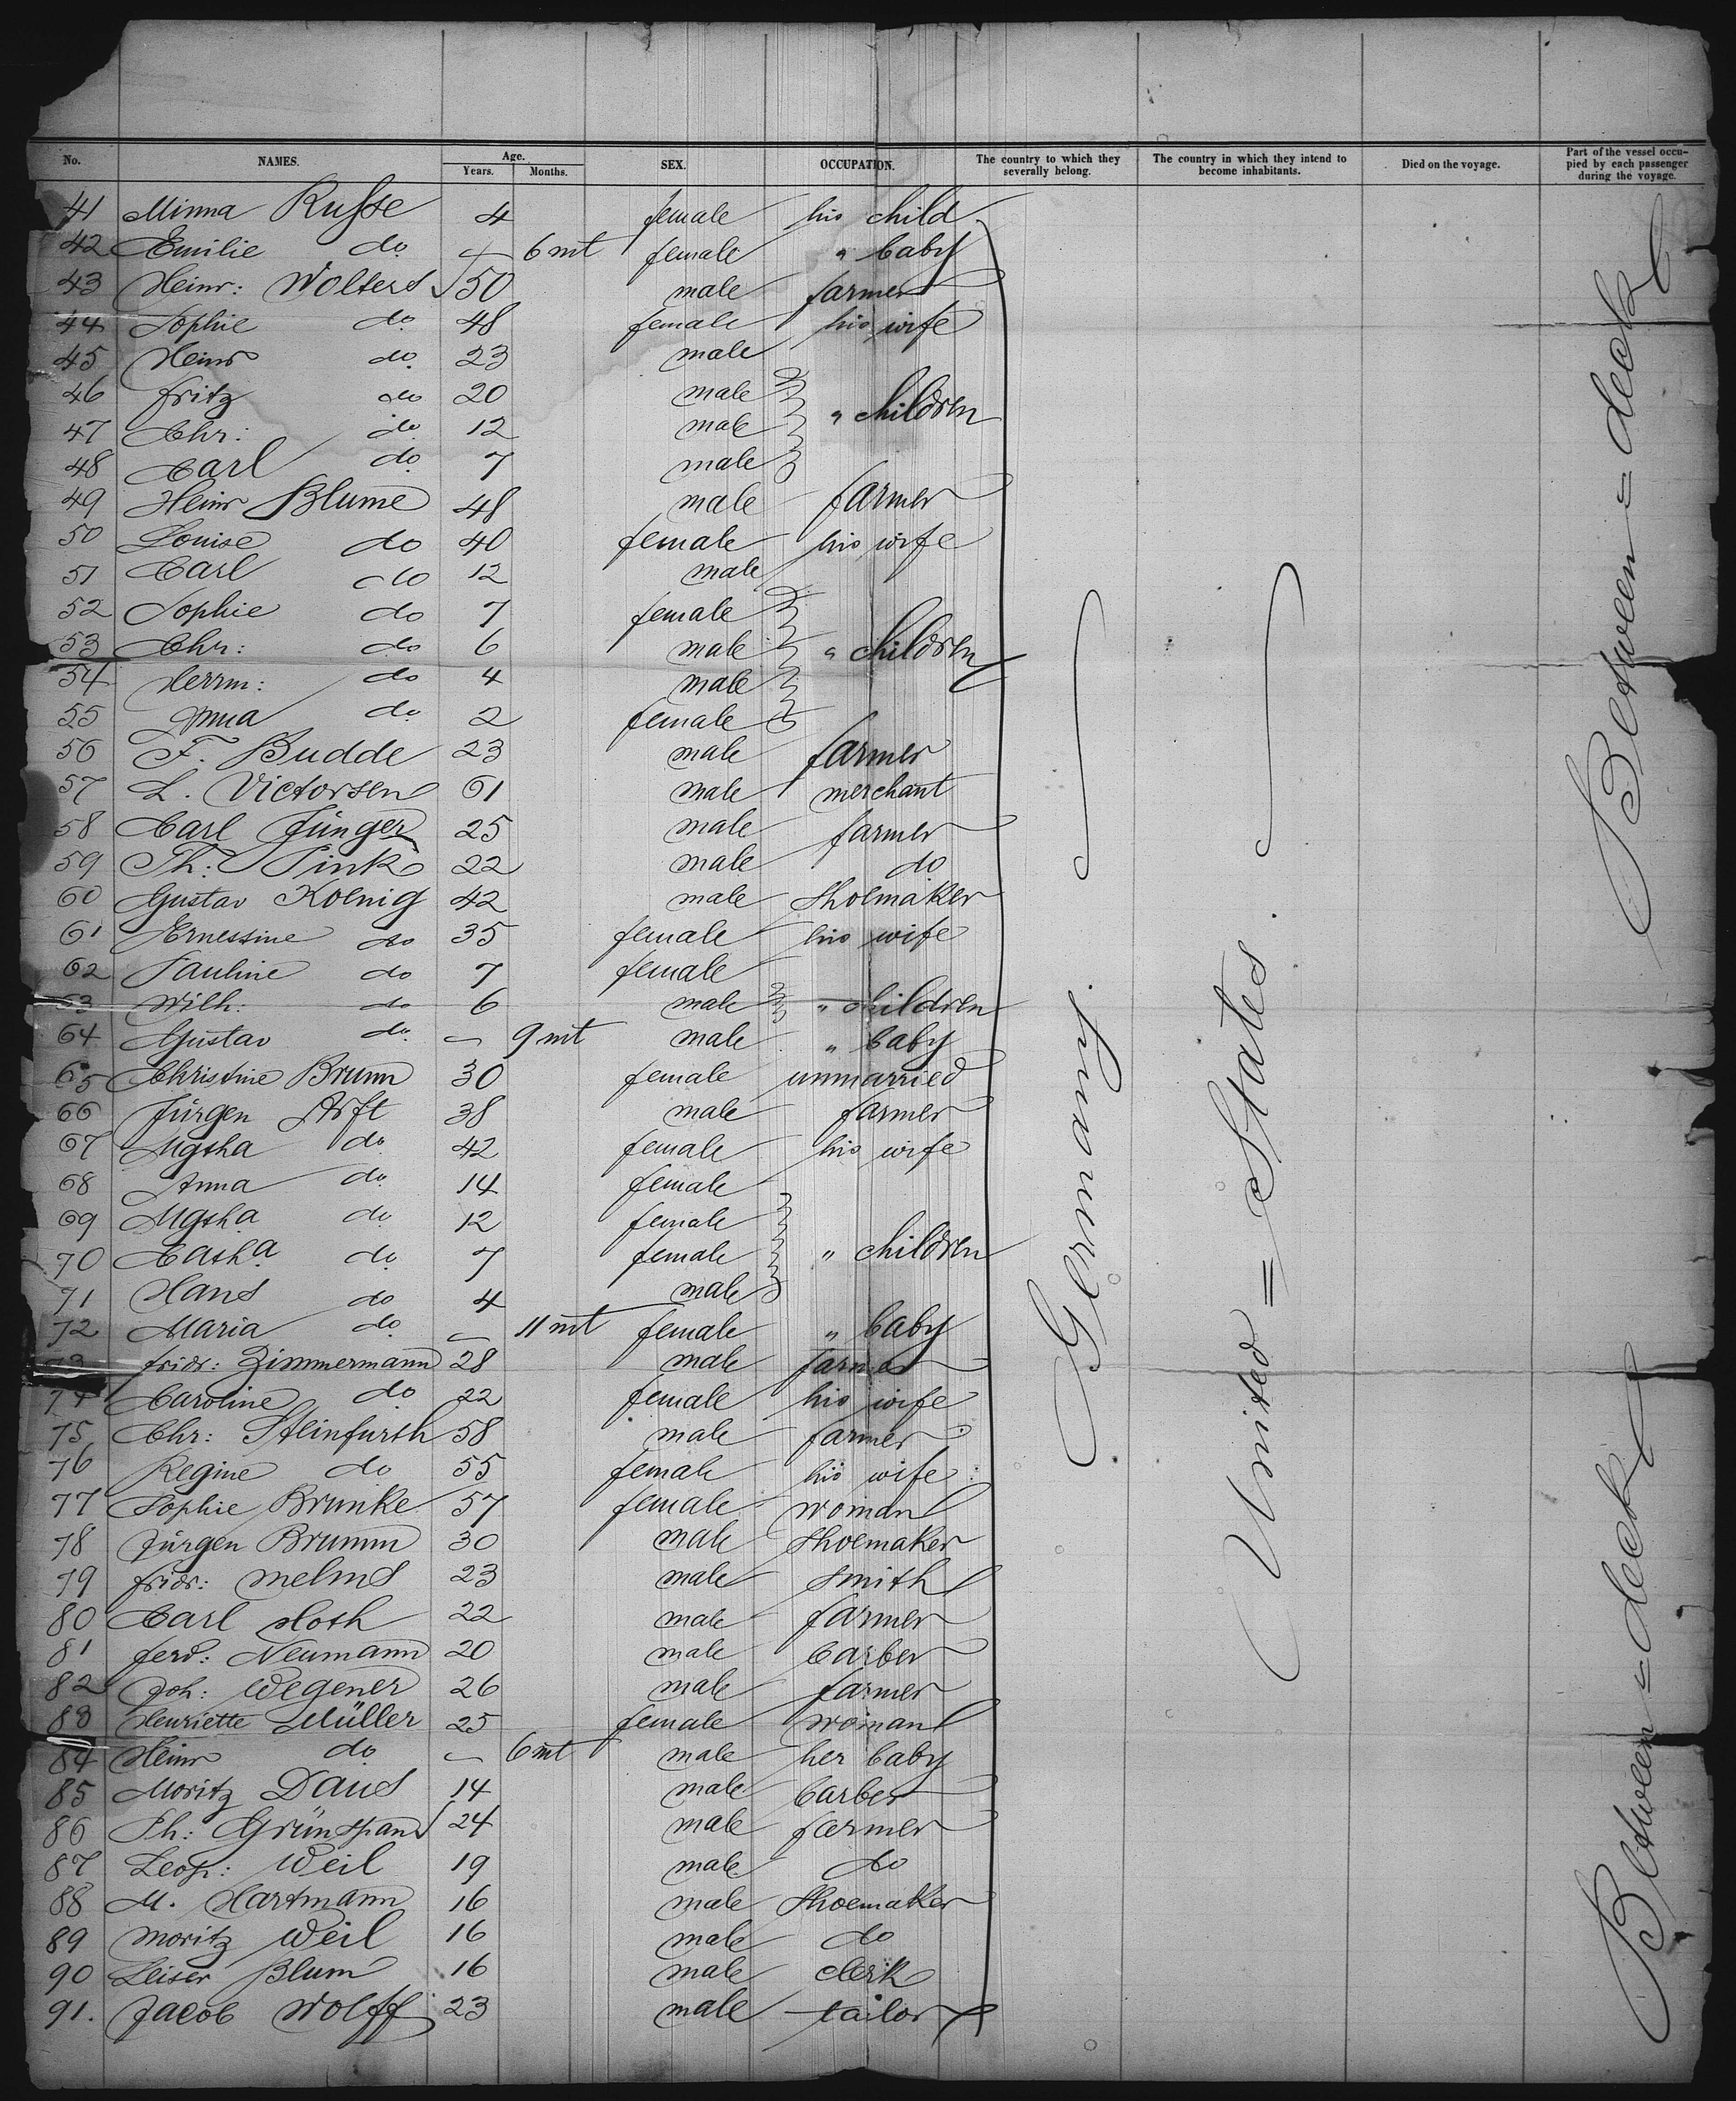 No. NAMES. Age. Years. Months. SEX. OCCUPATION. The country to which they severally belong. The country in which they intend to become inhabitants. Died on the voyage. Part of the vessel occupied by each passenger during the voyage.
41 Minna Russe 4 female his child
42 Emilie do 6 mt female " baby
43 Heinr: Wolters 50 male farmer
44 Sophie do 48 female his wife
45 Heinr do 23 male
46 Fritz do 20 male " children
47 Chr: do 12 male
48 Carl do 7 male
49 Heinr Blume 48 male farmer
50 Louise do 40 female his wife
51 Carl do 12 male
52 Sophie do 7 female
53 Chr: do 6 male " children
54 Herrm: do 4 male
55 Anna do 2 female
56 F. Budde 23 male farmer
57 L. Victorsen 61 male merchant
58 Carl Jünger 25 male farmer
59 Th: Pink 22 male do
60 Gustav Koenig 42 male Shoemaker
61 Ernestine do 35 female his wife
62 Pauline do 7 female
63 Wilh: do 6 male " children
64 Gustav do 9 mt male " baby
65 Christine Brumm 30 female unmarried
66 Jürgen Arft 38 male farmer
67 Mgtha do 42 female his wife
68 Anna do 14 female
69 Mgtha do 12 female
70 Catha do 7 female " children
71 Hans do 4 male
72 Maria do 11 mt female " baby
73 Fridr: Zimmermann 28 male farmer
74 Caroline do 22 female his wife
75 Chr: Steinfurth 58 male farmer
76 Regine do 55 female his wife
77 Sophie Brunke 57 female woman
78 Jürgen Brumm 30 male Shoemaker
79 Fridr: Melms 23 male Smith
80 Carl 22 male farmer
81 Ferd: Neumann 20 male barber
82 Joh: Wegener 26 male farmer
83 Henriette Müller 25 female woman
84 Heinr do 6 mt male her baby
85 Moritz Daus 14 male barber
86 Ph: Grünspan 24 male farmer
87 Leop: Weil 19 male do
88 M. Hartmann 16 male Shoemaker
89 Moritz Weil 16 male do
90 Leiser Blum 16 male clerk
91. Jacob Wolff 23 male tailor
Germany.
United = States.
Between = deck
Between = deck